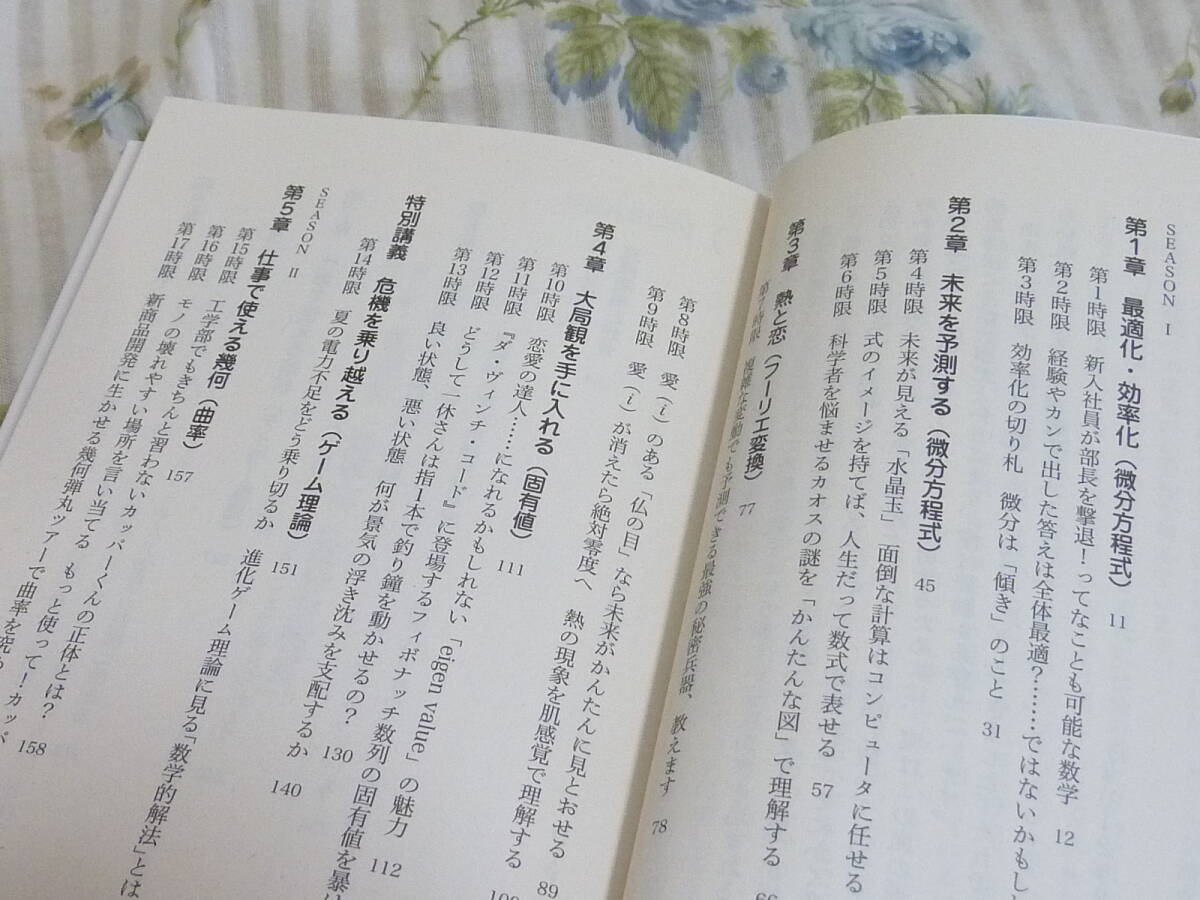 SEASON Ⅰ
第1章 最適化・効率化(微分方程式) 11
第1時限 新入社員が部長を撃退!ってなことも可能な数学 12
第2時限 経験やカンで出した答えは全体最適?……ではないかもし
第3時限 効率化の切り札 微分は「傾き」のこと 31
第2章 未来を予測する(微分方程式) 45
第4時限 未来が見える「水晶玉」 面倒な計算はコンピュータに任せる
第5時限 式のイメージを持てば、人生だって数式で表せる 57
第6時限 科学者を悩ませるカオスの謎を「かんたんな図」で理解する 66
第3章 熱と恋(フーリエ変換) 77
第7時限 複雑な変動でも予測できる最強の秘密兵器、教えます 78
第8時限 愛(i)のある「仏の目」なら未来がかんたんに見とおせる 89
第9時限 愛(i)が消えたら絶対零度へ 熱の現象を肌感覚で理解する 100
第4章 大局観を手に入れる(固有値) 111
第10時限 恋愛の達人……になれるかもしれない「eigen value」の魅力 112
第11時限 『ダ・ヴィンチ・コード』に登場するフィボナッチ数列の固有値を暴け
第12時限 どうして一休さんは指1本で釣り鐘を動かせるの? 130
第13時限 良い状態、悪い状態 何が景気の浮き沈みを支配するか 140
特別講義 危機を乗り越える(ゲーム理論) 151
第14時限 夏の電力不足をどう乗り切るか 進化ゲーム理論に見る「数学的解法」とは
SEASON Ⅱ
第5章 仕事で使える幾何(曲率) 157
第15時限 工学部でもきちんと習わないカッパーくんの正体とは? 158
第16時限 モノの壊れやすい場所を言い当てる もっと使って!カッパ
第17時限 新商品開発に生かせる幾何弾丸ツアーで曲率を究